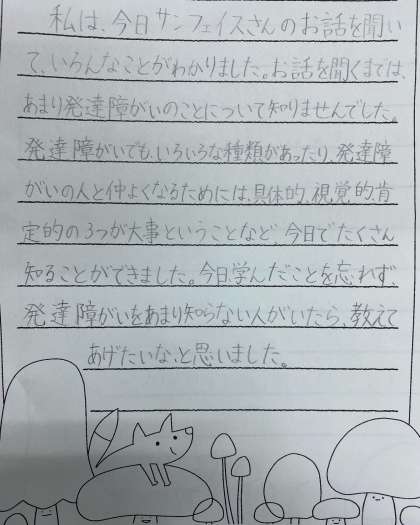 私は、今日サンフェイスさんのお話を聞い
て、いろんなことがわかりました。お話を聞くまでは、
あまり発達障がいのことについて知りませんでした。
発達障がいでも、いろいろな種類があったり、発達障
がいの人と仲よくなるためには、具体的、視覚的、肯
定的の3つが大事ということなど、今日でたくさん
知ることができました。今日学んだことを忘れず、
発達障がいをあまり知らない人がいたら、教えて
あげたいな、と思いました。